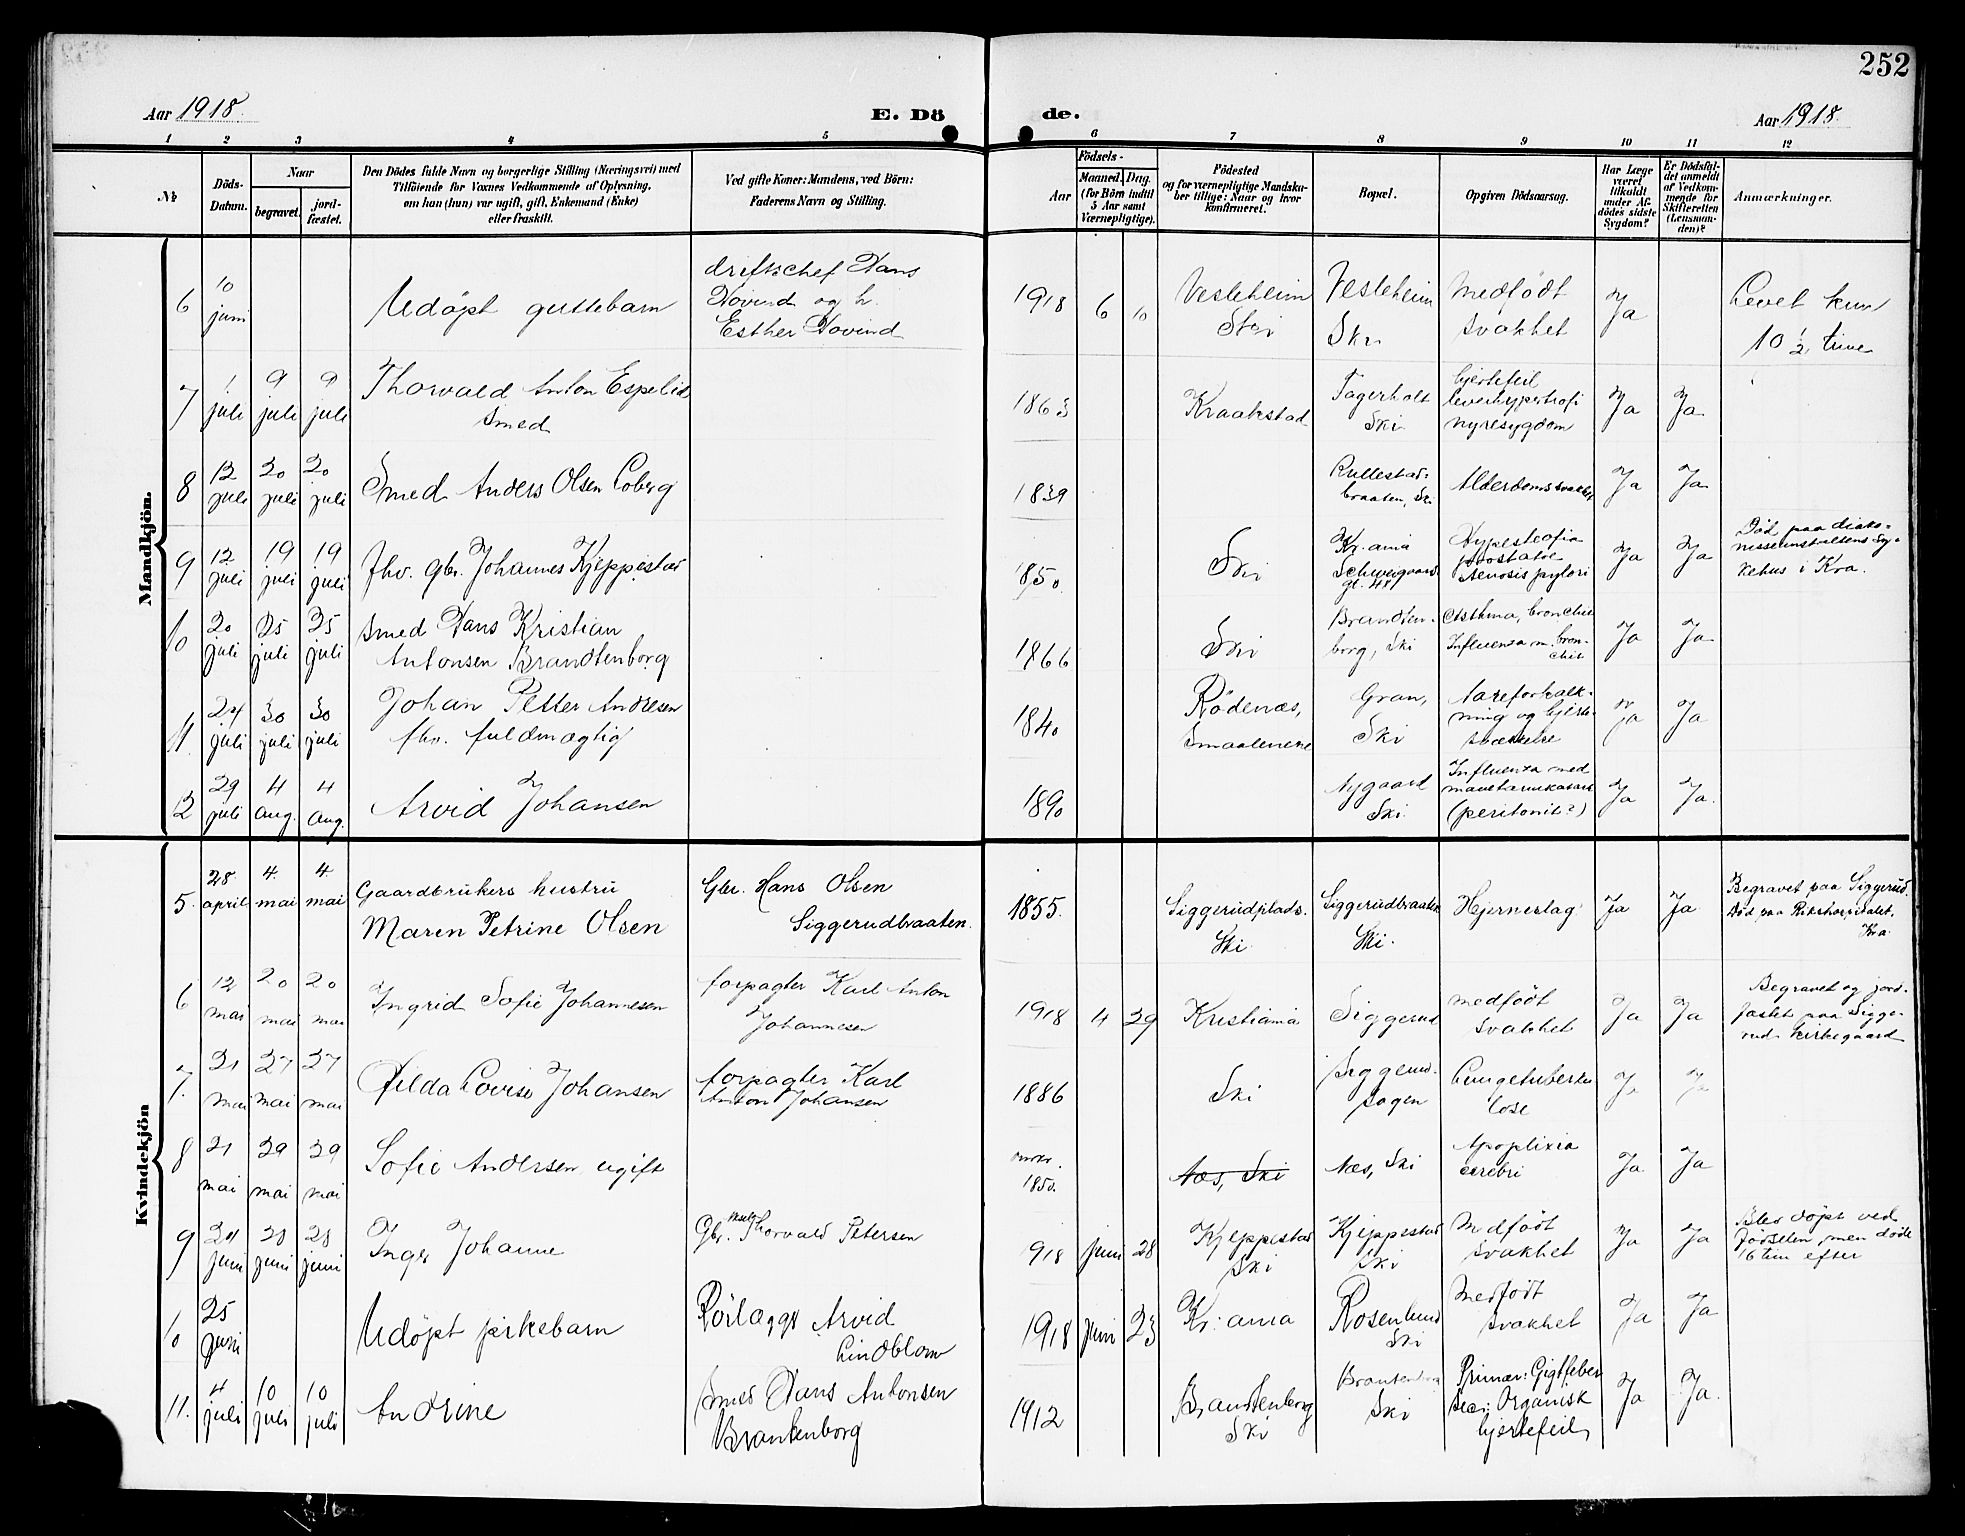 252
Aar 1918.
E. Dö
de.
Aar 1918.
1 2 3 4 5 6 7 8 9 10 11 12
No
Döds-
Datum.
Naar
begravet.
jord-
fæstet.
Den Dödes fulde Navn og borgerlige Stilling (Næringsvei) med
Tilföiende for Voxnes Vedkommende af Oplysning,
om han (hun) var ugift, gift, Enkemand (Enke)
eller fraskilt.
Ved gifte Koner: Mandens, ved Börn:
Faderens Navn og Stilling.
Födsels-
Aar
Maaned. Dag.
(for Börn indtil
5 Aar samt
Værnepligtige).
Födested
og for værnepligtige Mandska-
ber tillige: Naar og hvor
konfirmeret.
Bopæl.
Opgiven Dödsaarsag.
Har Læge
været
tilkaldt
under Af-
dödes sidste
Sygdom?
Er Dödsfal-
det anmeldt
af Vedkom-
mende for
Skifteretten
(Lensman-
den)?
Anmærkninger.
Mandkjön.
6
10
juni
Udöpt guttebarn
driftschef Hans
Hovind og h.
Esther Hovind
1918 6 10
Vesleheim
Ski
Vesleheim
Ski
Medfödt
svakhet
Ja
Levet kun
10 1/2 time
7
1
juli
9
juli
9
juli
Thorvald Anton Espelid
Smed
1863
Kraakstad
Fagerholt
Ski
hjertefeil
leverhypertrofi
nyresygdom
Ja
Ja
8
12
juli
20
juli
20
juli
Smed Anders Olsen Coberg
1839
Rullestad-
braaten, Ski
Alderdomssvakhet
Ja
Ja
9
12
juli
19
juli
19
juli
Fhv. gbr. Johannes Kjeppestad
1850
Ski
Kr.ania
Schweigaards
gt. 44
Hypertrofia
prostatae
stenosis pylori
Ja
Ja
Död paa diako-
nisseanstaltens sy-
kehus i Kra.
10
20
juli
25
juli
25
juli
Smed Hans Kristian
Antonsen Brandtenborg
1866
Ski
Brandten-
borg, Ski
Asthma, bronchi
Influensa m. bron-
chit
Ja
Ja
11
24
juli
30
juli
30
juli
Johan Petter Andresen
fhv. fuldmægtig
1840
Rödenæs,
Smaalenene
Gran,
Ski
Aareforkalk-
ning og hjerte-
svækkelse
ja
Ja
12
29
juli
4
aug.
4
aug.
Arvid Johansen
1890
Nygaard
Ski
Influensa med
mavetarmkatarr
(peritonit?)
Ja
Ja.
Kvindekjön
5.
28.
april
4.
mai
4.
mai
Gaardbrukers hustru
Maren Petrine Olsen
Gbr. Hans Olsen
Siggerudbraaten.
1855.
Siggerudplads.
Ski.
Siggerudbraaten
Ski.
Hjerneslag
Ja
Ja
Begravet paa Siggerud.
Död paa Rikshospitalet,
Kra.
6
12
mai
20
mai
20
mai
Ingrid Sofie Johannesen
forpagter Karl Anton
Johannesen
1918 4 29
Kristiania
Siggerud
medfödt
svakhet
Ja
Ja
Begravet og jord-
fæstet paa Sigge-
rud kirkegaard
7.
21
mai
27
mai
27
mai
Hilda Lovise Johansen
forpagter Karl
Anton Johansen
1886
Ski
Siggerud-
sagen
Lungetuberku
lose
Ja
Ja
8
21
mai
29
mai
29
mai
Sofie Andersen, ugift
omkr.
1850.
Næs, Ski
Næs, Ski
Apoplexia
cerebri
Ja
Ja
9
24
juni
28
juni
28
juni
Inger Johanne
Gbr. Thorvald Petersen
918 juni 28
Kjeppestad
Ski
Kjeppestad
Ski
Medfödt
svakhet
Ja
Ja
Blev döpt ved
födselen, men döde
16 tim efter
10
25
juni
Udöpt pikebarn
Rörlægger Arvid
Lindblom
1918 juni 23
Kr:ania
Rosenlund
Ski
Medfödt
svakhet
Ja
Ja
11.
4
juli
10
juli
10
juli
Andrine
Smed Hans Antonsen
Brantenborg
1912
Brandtenborg
Ski
Brantenborg
Ski
Primær: Gigtfeber
Sec: Organisk
hjertefeil
Ja
Ja.